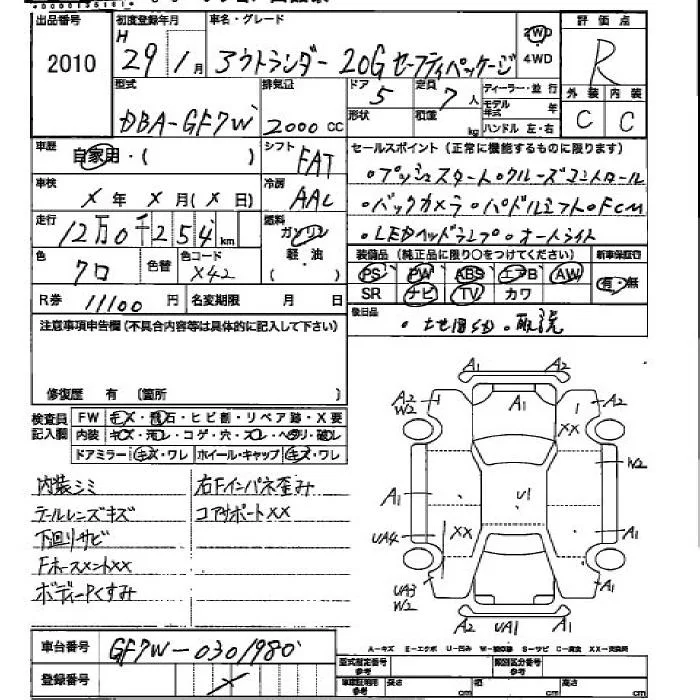 出品番号 初度登録年月 車名・グレード 評価点
2010 H 29年 1月 アウトランダー 20G セーフティパッケージ 2WD 4WD R
型式 排気量 ドア 5 定員 7人 ディーラー・並行 外装 内装
DBA-GF7W 2000cc 形状 積載 kg モデル年式 年 ハンドル 左・右 C C
車歴 自家用・( ) シフト FAT セールスポイント(正常に機能するものに限ります)
車検 X年 X月(X日) 冷房 AAC ・プッシュスタート・クルーズコントロール
走行 12万0千254km 燃料 ガソリン 軽・油 ・バックカメラ・パドルシフト・FCM
・LEDヘッドランプ・オートライト
色 クロ 色替 色コード X42 装備品(純正品に限り○をつけてください) 新車保証行
PS PW ABS エアB AW 有・無
R券 11100円 名変期限 月 日 SR ナビ TV カワ
注意事項申告欄(不具合内容等は具体的に記入して下さい) 後日品 ・取説
修復歴 有 (箇所 )
検査員記入欄 FW キズ・飛石・ヒビ割・リペア跡・X要
内装 キズ・汚れ・コゲ・穴・スレ・ヘタリ・破れ
ドアミラー キズ・ワレ ホイール・キャップ キズ・ワレ
内装シミ 右Fインパネ歪み
テールレンズキズ コアサポートXX
下廻りサビ
FホースメントXX
ボディーPくすみ
A1 A2
A2 W2 A1 XX A2
W2
A1 U1
UA4 XX A1
UA3 W2 A1
A2 UA1 A2
車台番号 GF7W-0301980
A-キズ E-エクボ U-凹み S-サビ
登録番号 X
型式指定番号 参考 類別区分番号 参考
車庫証明用 参考 長さ cm 幅 cm 高さ cm